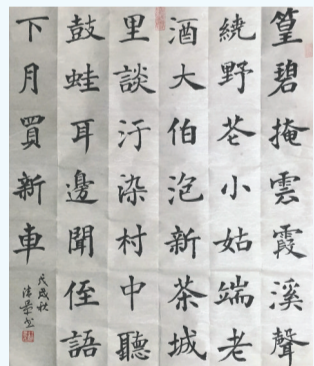 篁碧掩雲霞溪聲
繞野芲小姑端老
酒大伯泡新茶城
里談汙染村中聽
鼓蛙耳邊聞侄語
下月買新車
戊戌秋